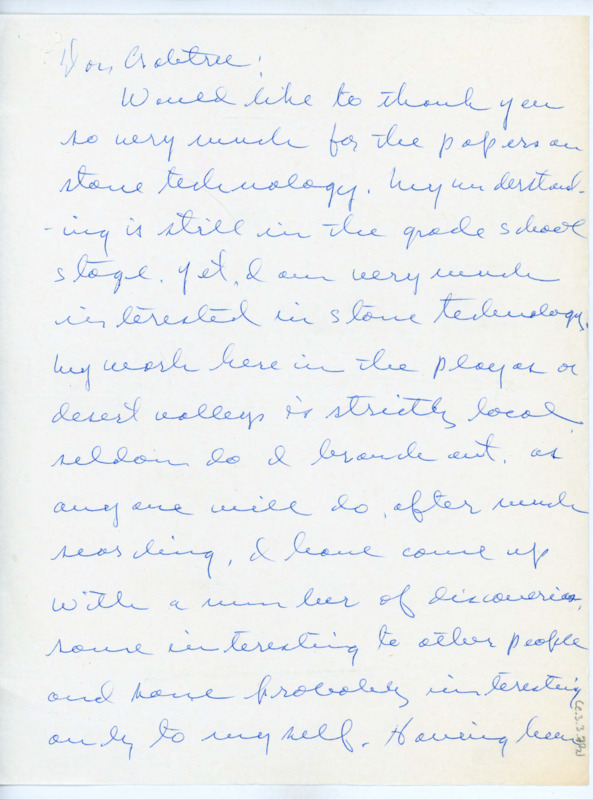 Don Crabtree:
Would like to thank you
so very much for the papers on
stone technology. My understand-
-ing is still in the grade school
stage. Yet, I am very much
interested in stone technology.
My work here in the playas or
desert valleys is strictly local
seldom do I branch out. as
anyone will do, after much
searching, I have come up
with a number of discoveries,
some interesting to other people
and some probably interesting
only to myself. Having been